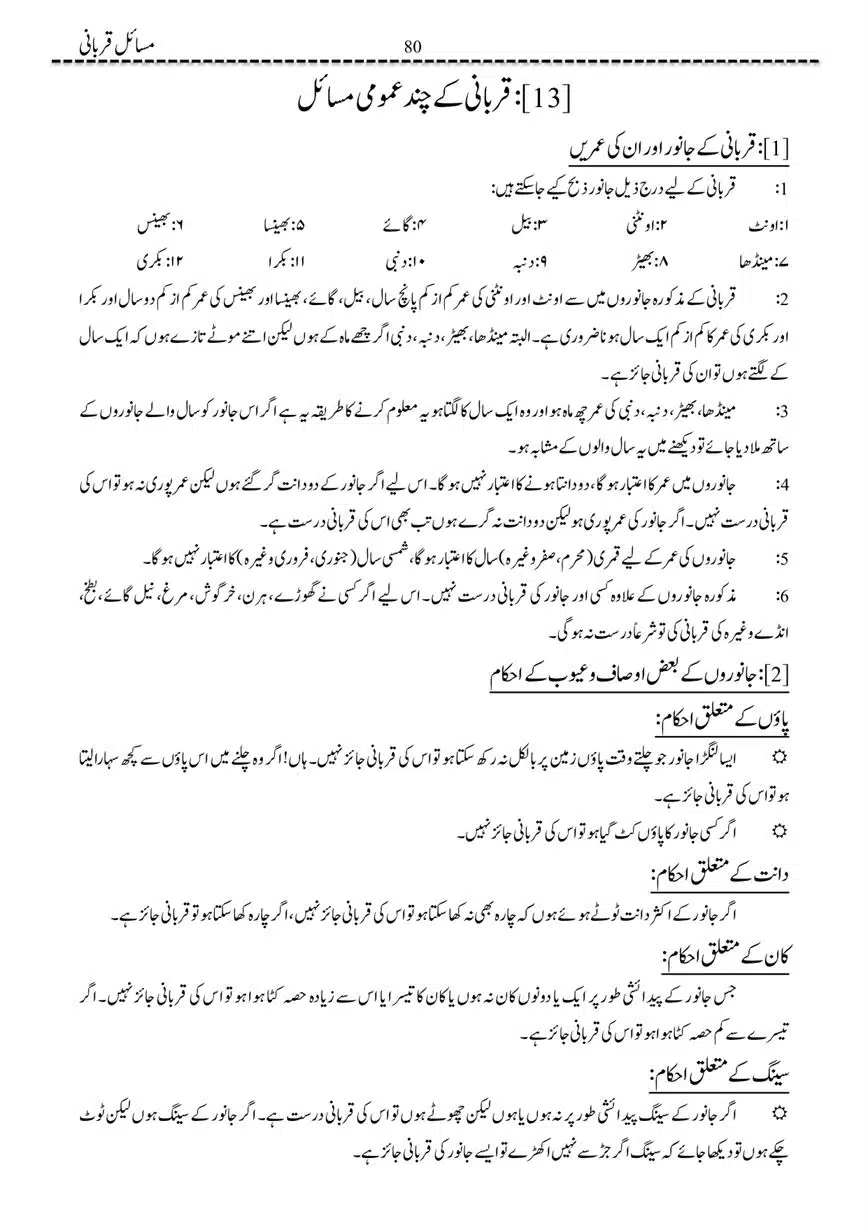 مسائل قربانی
80
[13]: قربانی کے چند عمومی مسائل
[1]: قربانی کے جانور اور ان کی عمریں
1: قربانی کے لیے درج ذیل جانور ذبح کیے جا سکتے ہیں:
۱: اونٹ ۲: اونٹنی ۳: بیل ۴: گائے ۵: بھینسا ۶: بھینس
۷: مینڈھا ۸: بھیڑ ۹: دنبہ ۱۰: دنبی ۱۱: بکرا ۱۲: بکری
2: قربانی کے مذکورہ جانوروں میں سے اونٹ اور اونٹنی کی عمر کم از کم پانچ سال، بیل، گائے، بھینسا اور بھینس کی عمر کم از کم دو سال اور بکرا
اور بکری کی عمر کا کم از کم ایک سال ہونا ضروری ہے۔ البتہ مینڈھا، بھیڑ، دنبہ، دنبی اگر چھے ماہ کے ہوں لیکن اتنے موٹے تازے ہوں کہ ایک سال
کے لگتے ہوں تو ان کی قربانی جائز ہے۔
3: مینڈھا، بھیڑ، دنبہ، دنبی کی عمر چھ ماہ ہو اور وہ ایک سال کا لگتا ہو یہ معلوم کرنے کا طریقہ یہ ہے اگر اس جانور کو سال والے جانوروں کے
ساتھ ملا دیا جائے تو دیکھنے میں یہ سال والوں کے مشابہ ہو۔
4: جانوروں میں عمر کا اعتبار ہو گا، دو دانتا ہونے کا اعتبار نہیں ہو گا۔ اس لیے اگر جانور کے دو دانت گر گئے ہوں لیکن عمر پوری نہ ہو تو اس کی
قربانی درست نہیں۔ اگر جانور کی عمر پوری ہو لیکن دو دانت نہ گرے ہوں تب بھی اس کی قربانی درست ہے۔
5: جانوروں کی عمر کے لیے قمری (محرم، صفر وغیرہ) سال کا اعتبار ہو گا، شمسی سال (جنوری، فروری وغیرہ) کا اعتبار نہیں ہو گا۔
6: مذکورہ جانوروں کے علاوہ کسی اور جانور کی قربانی درست نہیں۔ اس لیے اگر کسی نے گھوڑے، ہرن، خرگوش، مرغ، نیل گائے، بطخ،
انڈے وغیرہ کی قربانی کی تو شرعاً درست نہ ہو گی۔
[2]: جانوروں کے بعض اوصاف و عیوب کے احکام
پاؤں کے متعلق احکام:
۞ ایسا لنگڑا جانور جو چلتے وقت پاؤں زمین پر بالکل نہ رکھ سکتا ہو تو اس کی قربانی جائز نہیں۔ ہاں! اگر وہ چلنے میں اس پاؤں سے کچھ سہارا لیتا
ہو تو اس کی قربانی جائز ہے۔
۞ اگر کسی جانور کا پاؤں کٹ گیا ہو تو اس کی قربانی جائز نہیں۔
دانت کے متعلق احکام:
اگر جانور کے اکثر دانت ٹوٹے ہوئے ہوں کہ چارہ بھی نہ کھا سکتا ہو تو اس کی قربانی جائز نہیں، اگر چارہ کھا سکتا ہو تو قربانی جائز ہے۔
کان کے متعلق احکام:
جس جانور کے پیدائشی طور پر ایک یا دونوں کان نہ ہوں یا کان کا تیسرا یا اس سے زیادہ حصہ کٹا ہوا ہو تو اس کی قربانی جائز نہیں۔ اگر
تیسرے سے کم حصہ کٹا ہوا ہو تو اس کی قربانی جائز ہے۔
سینگ کے متعلق احکام:
۞ اگر جانور کے سینگ پیدائشی طور پر نہ ہوں یا ہوں لیکن چھوٹے ہوں تو اس کی قربانی درست ہے۔ اگر جانور کے سینگ ہوں لیکن ٹوٹ
چکے ہوں تو دیکھا جائے کہ سینگ اگر جڑ سے نہیں اکھڑے تو ایسے جانور کی قربانی جائز ہے۔